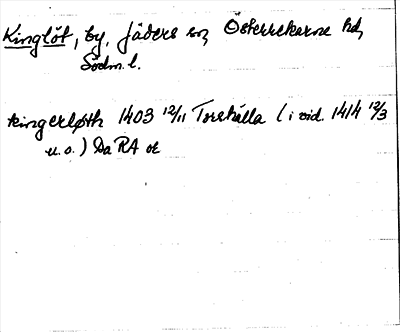 Kinglöt, by, Jäders sn, Österrekarne hd,
Södm. l.
kingerløth 1403 12/11 Torshälla (i vid. 1414 12/3
u. o.) Da RA or